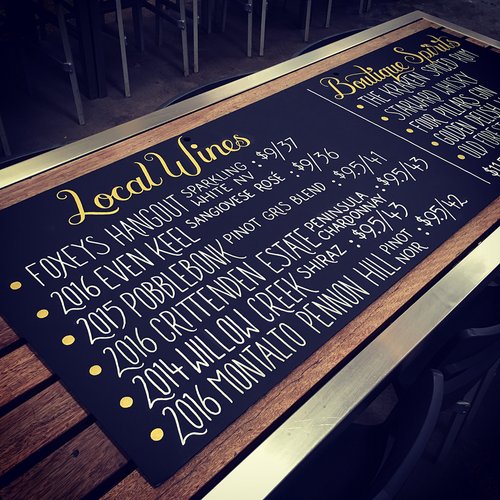 Local Wines
FOXEYS HANGOUT SPARKLING WHITE NV : $9/37
2016 EVEN KEEL SANGIOVESE ROSÉ : $9/36
2015 POBBLEBONK PINOT GRIS BLEND : $9.5/41
2016 CRITTENDEN ESTATE PENINSULA CHARDONNAY : $9.5/43
2014 WILLOW CREEK SHIRAZ : $9.5/43
2016 MONTALTO PENNON HILL PINOT NOIR : $9.5/42
Boutique Spirits
THE KRAKEN SPICED RUM
STARWARD WHISKY
FOUR PILLARS GIN